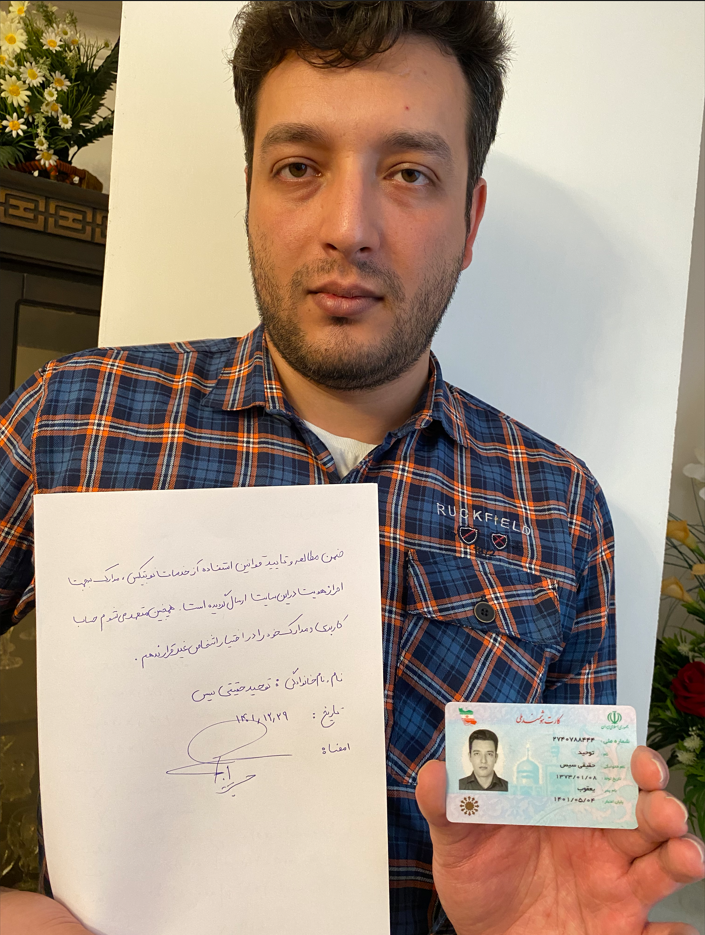 ضمن مطالعه و تایید قوانین استفاده از خدمات نوبیتکس، مدارک جهت
احراز هویت در این سایت ارسال گردیده است. همچنین متعهد می شوم حساب
کاربری و مدارک خود را در اختیار اشخاص غیر قرار ندهم.
نام، نام خانوادگی: توحید حقیقی سیس
تاریخ: ۱۴۰۱,۱۲,۲۹
امضاء
RUCKFIELD
کارت هوشمند ملی
جمهوری اسلامی ایران
شماره ملی: ۲۷۴۰۷۸۸۴۴۴
توحید
نام خانوادگی: حقیقی سیس
تاریخ تولد: ۱۳۷۴/۰۱/۰۸
نام پدر: یعقوب
پایان اعتبار: ۱۴۰۱/۰۵/۰۴